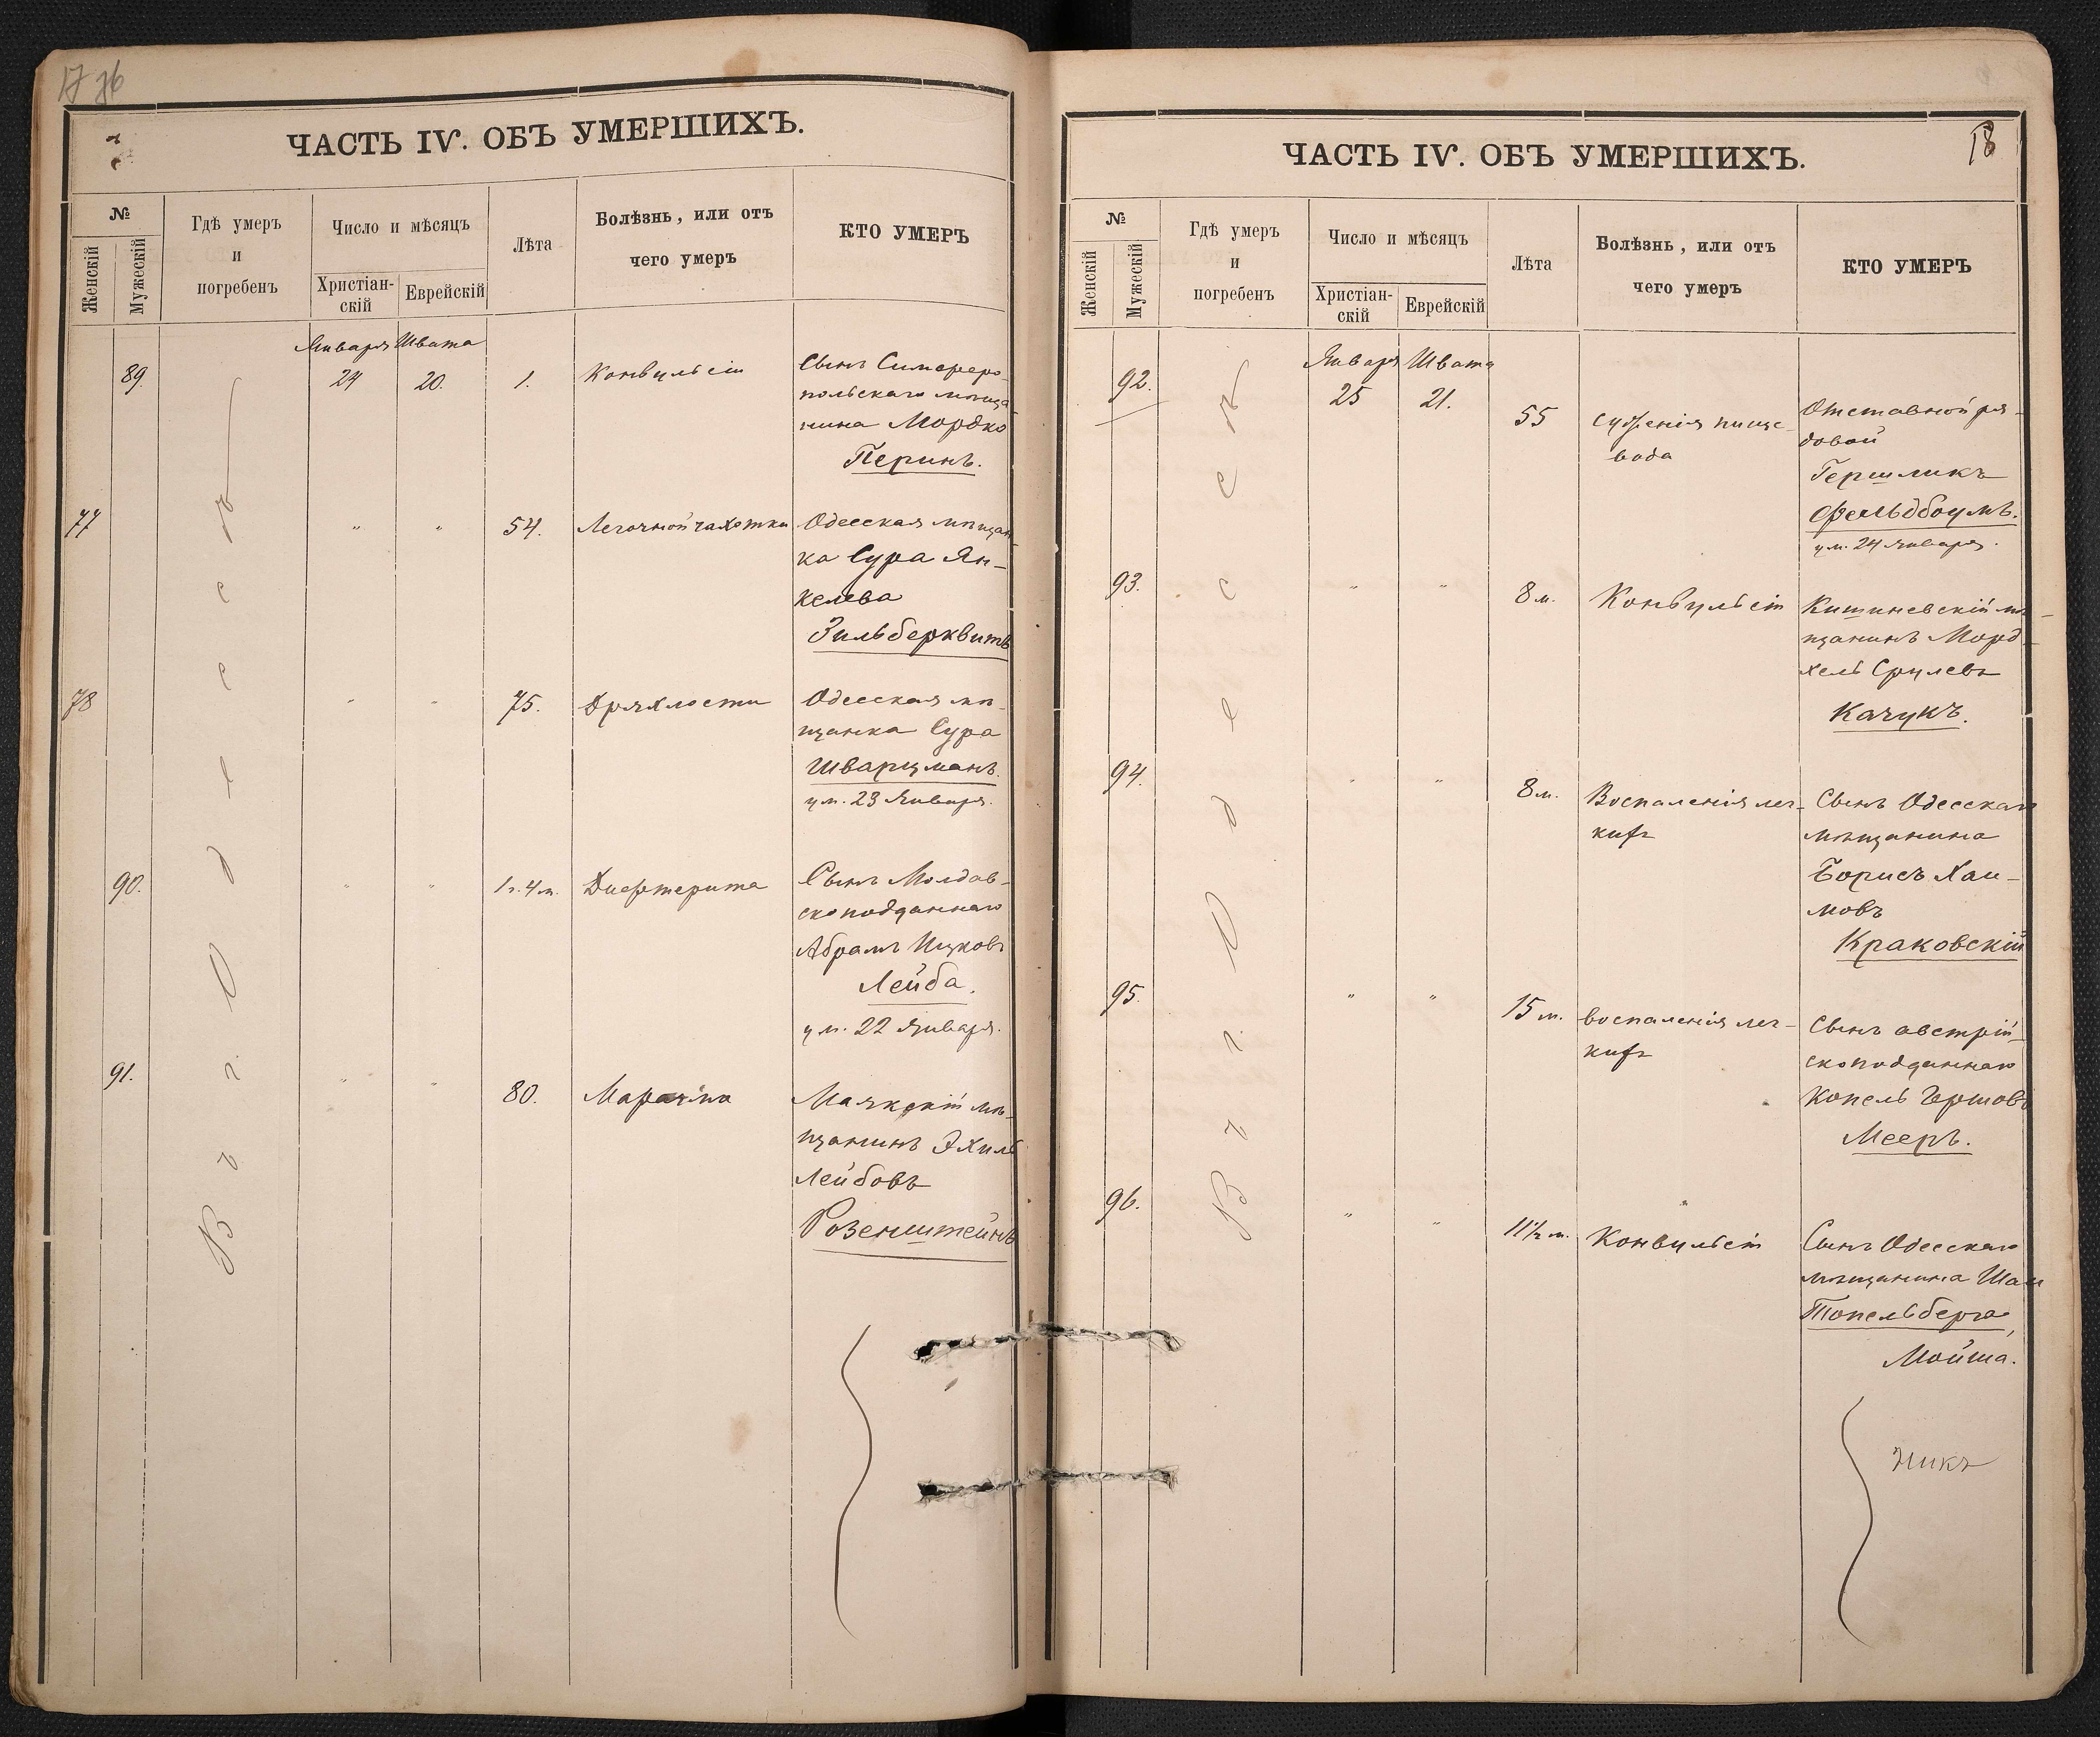 17 об
ЧАСТЬ IV. ОБЪ УМЕРШИХЪ.
№
Женскій
Мужескій
Гдѣ умеръ
и
погребенъ
Число и мѣсяцъ
Христіан-
скій
Еврейскій
Лѣта
Болѣзнь, или отъ
чего умеръ
КТО УМЕРЪ
Въ г. Одессѣ
Января Швата
89. 24 20. 1. Конвульсіи Сынъ Симферо-
польскаго мѣща-
нина Мордко
Перинъ.
77 " " 54. Легочной чахотки Одесская мѣщан-
ка Сура Ян-
келева
Зильберквитъ
78 " " 75. Дряхлости Одесская мѣ-
щанка Сура
Шварцманъ.
ум. 23 Января.
90. " " 1 г. 4 м. Дифтерита Сынъ Молдав-
скоподданнаго
Абрамъ Ицковъ
Лейба.
ум. 22 Января.
91. " " 80. Маразма Маякскій мѣ-
щанинъ Эхиль
Лейбовъ
Розенштейнъ
18
ЧАСТЬ IV. ОБЪ УМЕРШИХЪ.
№
Женскій
Мужескій
Гдѣ умеръ
и
погребенъ
Число и мѣсяцъ
Христіан-
скій
Еврейскій
Лѣта
Болѣзнь, или отъ
чего умеръ
КТО УМЕРЪ
Въ г. Одессѣ
Января Швата
92. 25 21. 55 Суженія пище-
вода
Отставной ря-
довой
Гершликъ
Фельдбоумъ.
ум. 24 Января.
93. " " 8 м. Конвульсіи Кишиневскій мѣ-
щанинъ Морд-
хель Срулевъ
Качукъ.
94. " " 8 м. Воспаленія лег-
кихъ
Сынъ Одесскаго
мѣщанина
Борисъ Хаи-
мовъ
Краковскій
95. " " 15 м. воспаленія лег-
кихъ
Сынъ австрій-
скоподданнаго
Копель Гершовъ
Мееръ.
96. " " 11½ м. Конвульсіи Сынъ Одесскаго
мѣщанина Шаи
Топельберга,
Мойша.